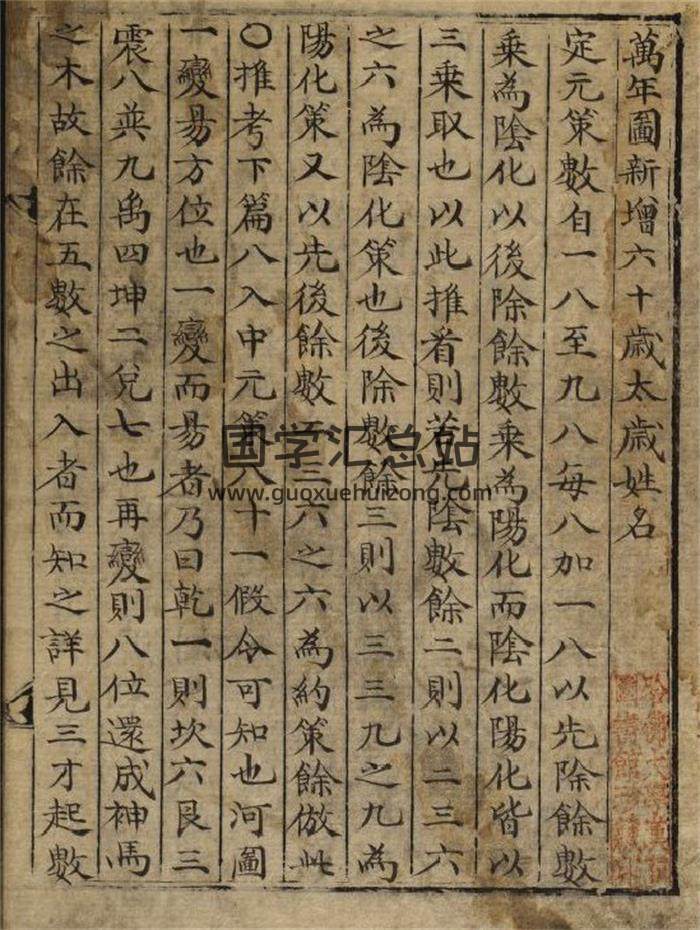 萬年圖新增六十歳太歳姓名
定元策數自一八至九八每八加一八以先除餘數
乗為陰化以後除餘數乗為陽化而陰化陽化皆以
三乗取也以此推者則若先陰數餘二則以二三六
之六為陰化策也後除數餘三則以三三九之九為
陽化策又以先後餘數二三六之六為約策餘倣此
〇推考下篇八入中元第八十一假令可知也河圖
一變易方位也一變而易者乃曰乾一則坎六艮三
震八巽九离四坤二兌七也再變則八位還成神馬
之木故餘在五數之出入者而知之詳見三才起數
国学汇总站
www.guoxuehuizong.com